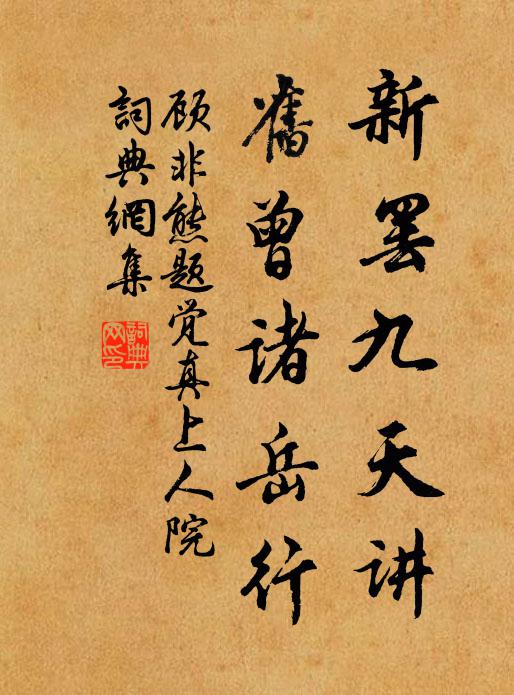 新罢九天讲
舊曾诸岳行
顾非熊题觉真上人院
詞典網集
詞典
网印